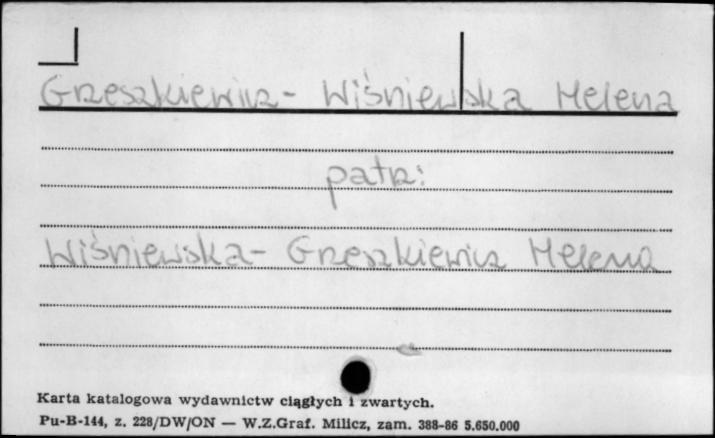 Grzeszkiewicz- Wiśniewska Helena
patrz:
Wiśniewska- Grzeszkiewicz Helena
Karta katalogowa wydawnictw ciągłych i zwartych.
Pu-B-144, z. 228/DW/ON — W.Z.Graf. Milicz, zam. 388-86 5.650.000